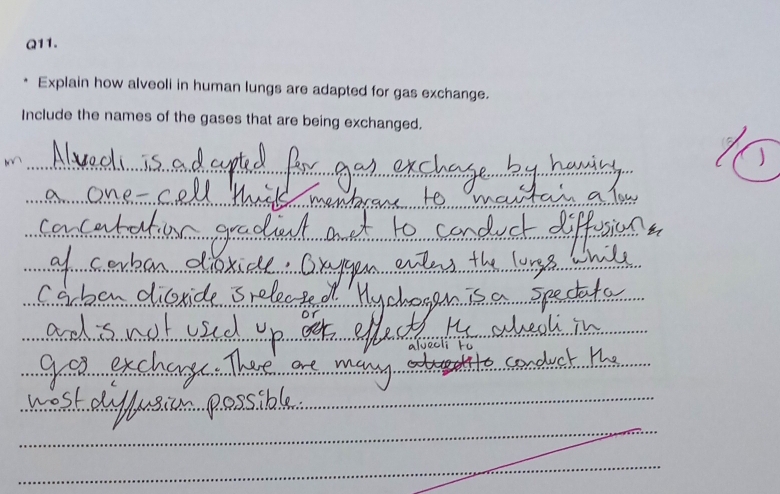 Q11.
* Explain how alveoli in human lungs are adapted for gas exchange.
Include the names of the gases that are being exchanged.
Alveoli is adapted for gas exchange by having
a one-cell thick membrane to maintain a low
concentration gradient and to conduct diffusion
of carbon dioxide. Oxygen enters the lungs while
Carbon dioxide is released. Hydrogen is a spectator
and is not used up or effects the alveoli in
gas exchange. There are many alveoli to conduct the
most diffusion possible.
1